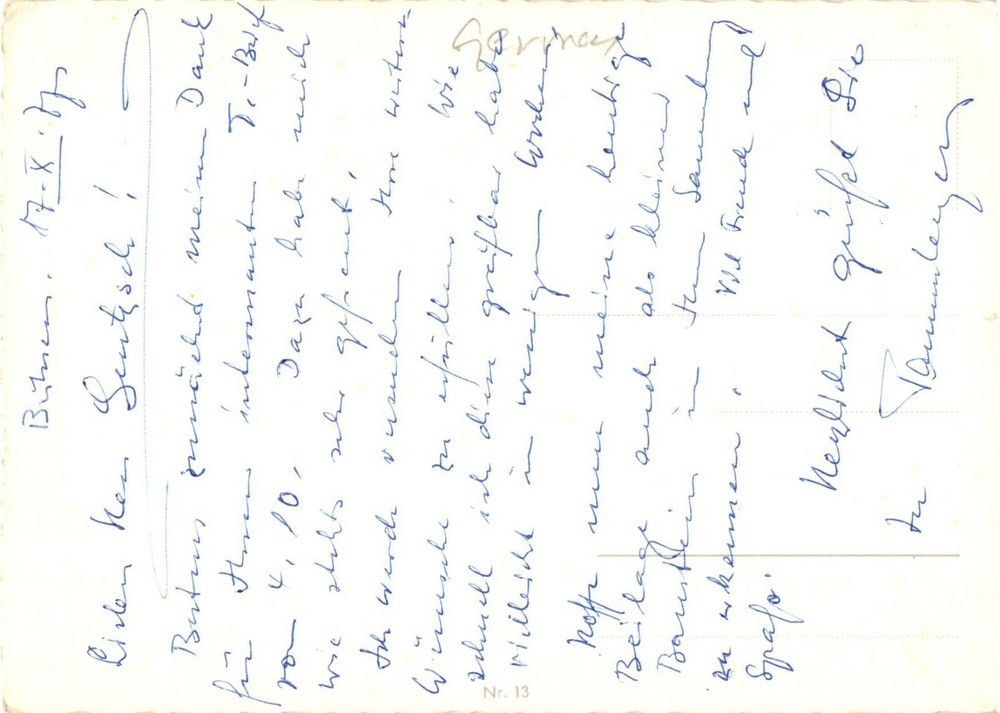 17-XI.
Lieber Herr Gentzsch!
Bestens zunächst meinen Dank
für Ihren interessanten Tr-Brief
vom 4.10. Dazu habe mich
wie stets sehr gefreut.
Ich werde versuchen Ihre weiteren
Wünsche zu erfüllen. Wie
schnell ich diese greifbar habe
vielleicht in wenigen Wochen
Hoffe nun meine heutige
Beilage auch als kleinen
Baustein in Ihrer Sammlung
zu erkennen. Viel Freude und
Spaß.
Herzlichst grüßet Sie
Ihr
German
Nr. 13